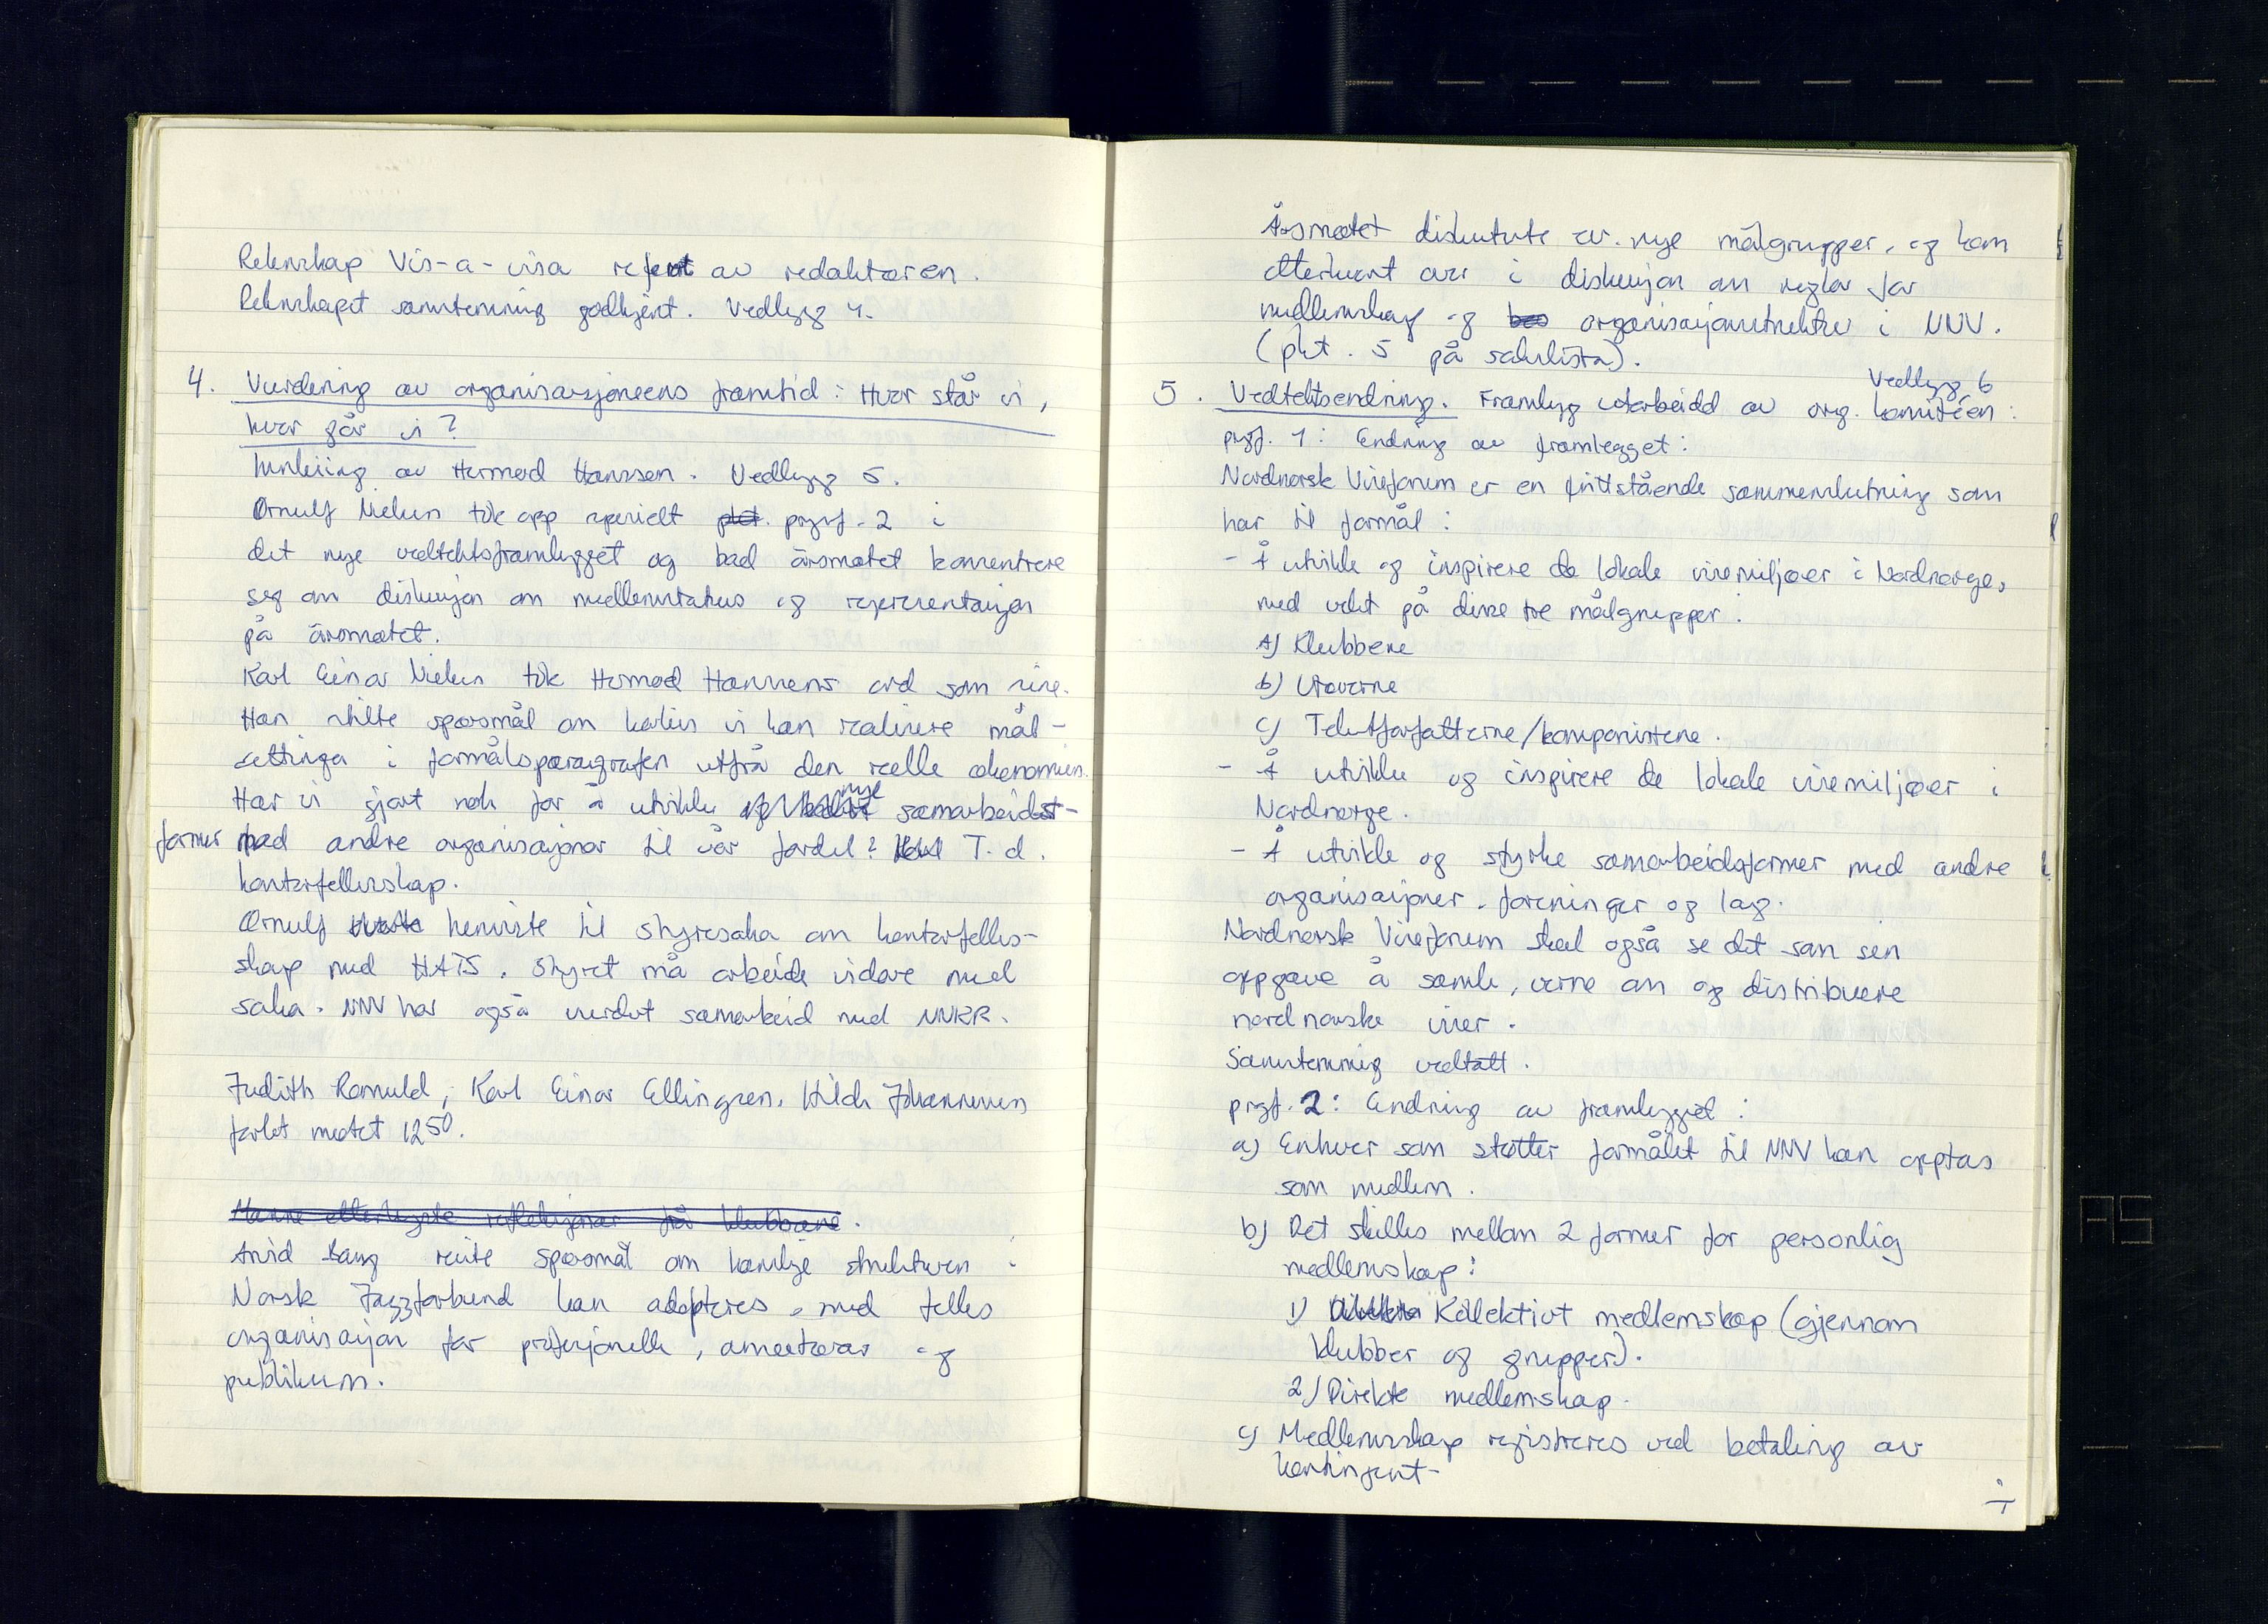 Rekneskap Vis-a-visa referert av redaktøren.
Rekneskapet samstemmig godkjent. Vedlegg 4.
4. Vurdering av organisasjoneens framtid: Hvor står vi,
hvor går vi?
Innleiing av Hermod Hanssen. Vedlegg 5.
Ørnulf Nielsen tok opp spesielt pkt. prgrf. 2 i
det nye vedtektsframlegget og bad årsmøtet konsentrere
seg om diskusjon om medlemsstatus og representasjon
på årsmøtet.
Karl Einar Nielsen tok Hermod Hanssens ord som sine.
Han stilte spørsmål om korleis vi kan realisere mål-
settinga i formålsparagrafen utfrå den reelle økonomien.
Har vi gjort nok for å utvikle nye samarbeidst-
former med andre organisasjonar til vår fordel? T.d.
kontorfellesskap.
Ørnulf henviste til styresaka om kontorfelles-
skap med HATS. Styret må arbeide vidare med
saka. NNV har også vurdert samarbeid med NNRR.
Judith Romuld, Karl Einar Ellingsen, Hilde Johannessen
forlot møtet 12 50.
Hanne etterlyste refleksjonar frå klubbane.
Arvid Bang reiste spørsmål om kanskje strukturen i
Norsk Jazzforbund kan adopteres, med felles
organisasjon for profesjonelle, amatørar og
publikum.
Årsmøtet diskuterte ev. nye målgrupper, og kom
etterkvart over i diskusjon om reglar for
medlemskap og organisasjonsstruktur i NNV.
(pkt. 5 på sakslista).
Vedlegg 6
5. Vedtektsendring. Framlegg utarbeidd av org. komitéen:
prgf. 1: Endring av framlegget:
Nordnorsk Viseforum er en frittstående sammenslutning som
har til formål:
- Å utvikle og inspirere de lokale visemiljøer i Nordnorge,
med vekt på disse tre målgrupper:
A) Klubbene
b) Utøverne
c) Tekstforfatterne/komponistene.
- Å utvikle og inspirere de lokale visemiljøer i
Nordnorge.
- Å utvikle og styrke samarbeidsformer med andre
organisasjoner, foreninger og lag.
Nordnorsk Viseforum skal også se det som sin
oppgave å samle, verne om og distribuere
nordnorske viser.
Samstemmig vedtatt.
prgf. 2: Endring av framlegget:
a) Enhver som støtter formålet til NNV kan opptas
som medlem.
b) Det skilles mellom 2 former for personlig
medlemskap:
1) Kollektivt medlemskap (gjennom
klubber og grupper).
2) Direkte medlemskap.
c) Medlemsskap registreres ved betaling av
kontingent